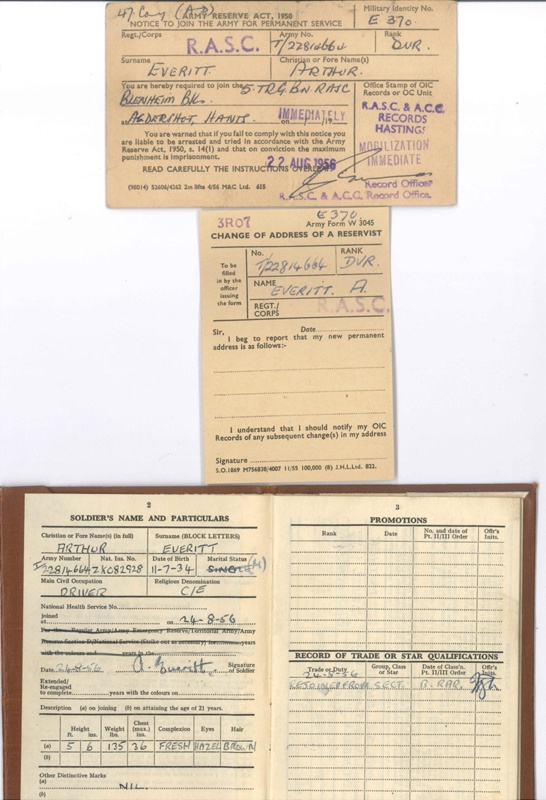 47. Coy (AD)
ARMY RESERVE ACT, 1950
NOTICE TO JOIN THE ARMY FOR PERMANENT SERVICE
Military Identity No.
E 370.
Regt./Corps
R.A.S.C.
Army No.
T/22814664
Rank
DVR.
Surname
EVERITT.
Christian or Fore Name(s)
ARTHUR.
You are hereby required to join the 5. TRG BN RASC
BLENHEIM BKS.
at ALDERSHOT, HANTS.
on IMMEDIATELY 19
Office Stamp of OIC
Records or OC Unit
R.A.S.C. & A.C.C.
RECORDS
HASTINGS
MOBILIZATION
IMMEDIATE
You are warned that if you fail to comply with this notice you
are liable to be arrested and tried in accordance with the Army
Reserve Act, 1950, s. 14(1) and that on conviction the maximum
punishment is imprisonment.
22 AUG 1956
READ CAREFULLY THE INSTRUCTIONS OVERLEAF
Record Officer
R.A.S.C. & A.C.C. Record Office.
(98014) 52606/4262 2m lfts 4/56 MAC Ltd. 655
3R07
E 370.
Army Form W 3045
CHANGE OF ADDRESS OF A RESERVIST
To be
filled
in by the
officer
issuing
the form
No.
T/22814664
RANK
DVR.
NAME
EVERITT. A.
REGT./
CORPS
R.A.S.C.
Date
Sir,
I beg to report that my new permanent
address is as follows:-
I understand that I should notify my OIC
Records of any subsequent change(s) in my address
Signature
S.O.1869 M756830/4007 11/55 100,000 (R) J.H.L.Ltd. 822.
2
SOLDIER'S NAME AND PARTICULARS
Christian or Fore Name(s) (in full)
Surname (BLOCK LETTERS)
ARTHUR
EVERITT
Army Number
Nat. Ins. No.
Date of Birth
Marital Status
T/22814664
ZK082928
11-7-34
SINGLE (M)
Main Civil Occupation
Religious Denomination
DRIVER
C/E
National Health Service No.
joined
at on 24-8-56
For the Regular Army/Army Emergency Reserve/Territorial Army/Army
Reserve Section D/National Service (Strike out as necessary) for years
with the colours and years in the
Date 24-8-56 A. Everitt Signature of Soldier
Extended/
Re-engaged
to complete years with the colours on
Description (a) on joining (b) on attaining the age of 21 years.
Height
ft. ins.
Weight
lbs.
Chest
(max.)
ins.
Complexion
Eyes
Hair
(a) 5 6 135 36 FRESH HAZEL BROWN
(b)
Other Distinctive Marks
(a) NIL.
(b)
3
PROMOTIONS
Rank
Date
No. and date of
Pt. II/III Order
Offr's
Inits.
RECORD OF TRADE OR STAR QUALIFICATIONS
Trade or Duty
Group, Class
or Star
Date of Class'n.
Pt. II/III Order
Offr's
Inits.
24-8-56
REJOINED FROM SECT. B. RAR.